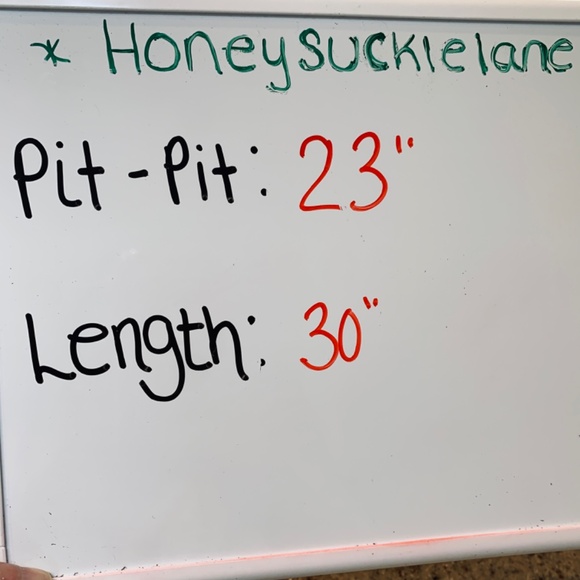 * Honeysucklelane
Pit-Pit: 23"
Length: 30"